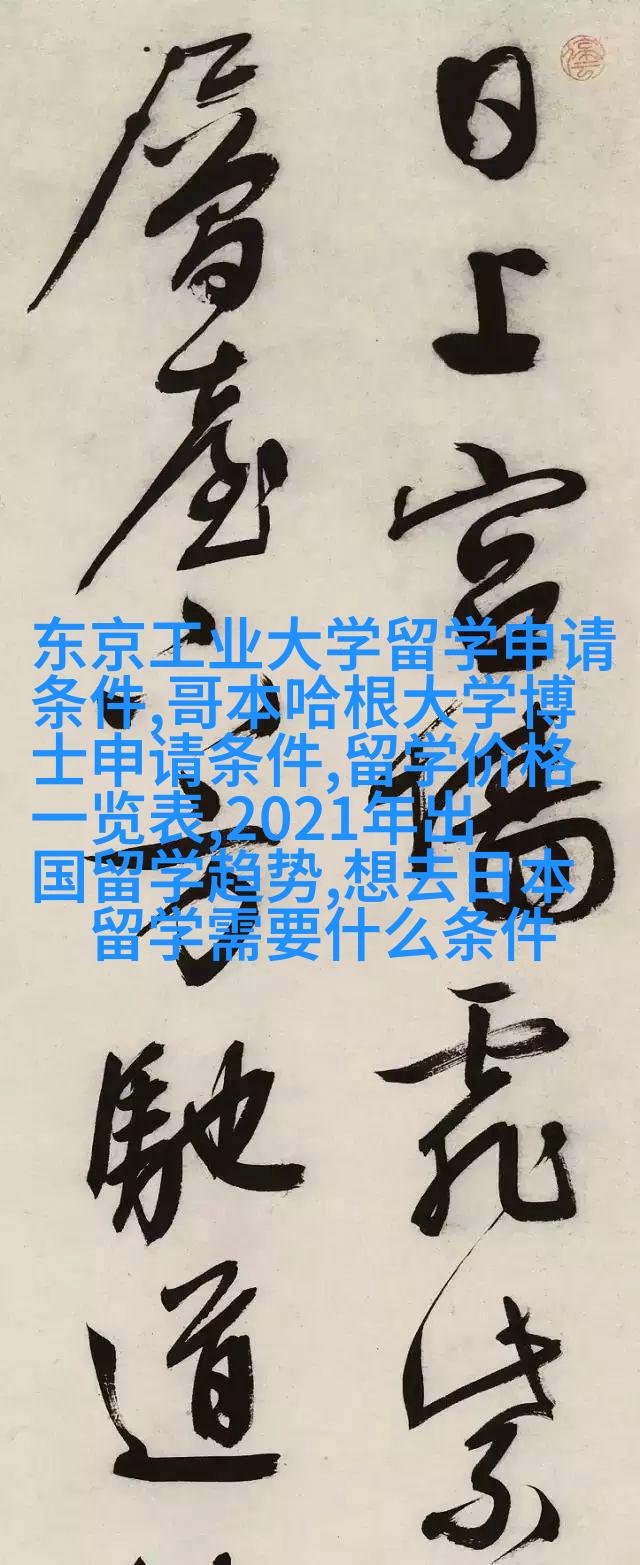 日上宮墻飛紫
層臺下方馳道
东京工业大学留学申请
条件,哥本哈根大学博
士申请条件,留学价格
一览表,2021年出
国留学趋势,想去日本
留学需要什么条件